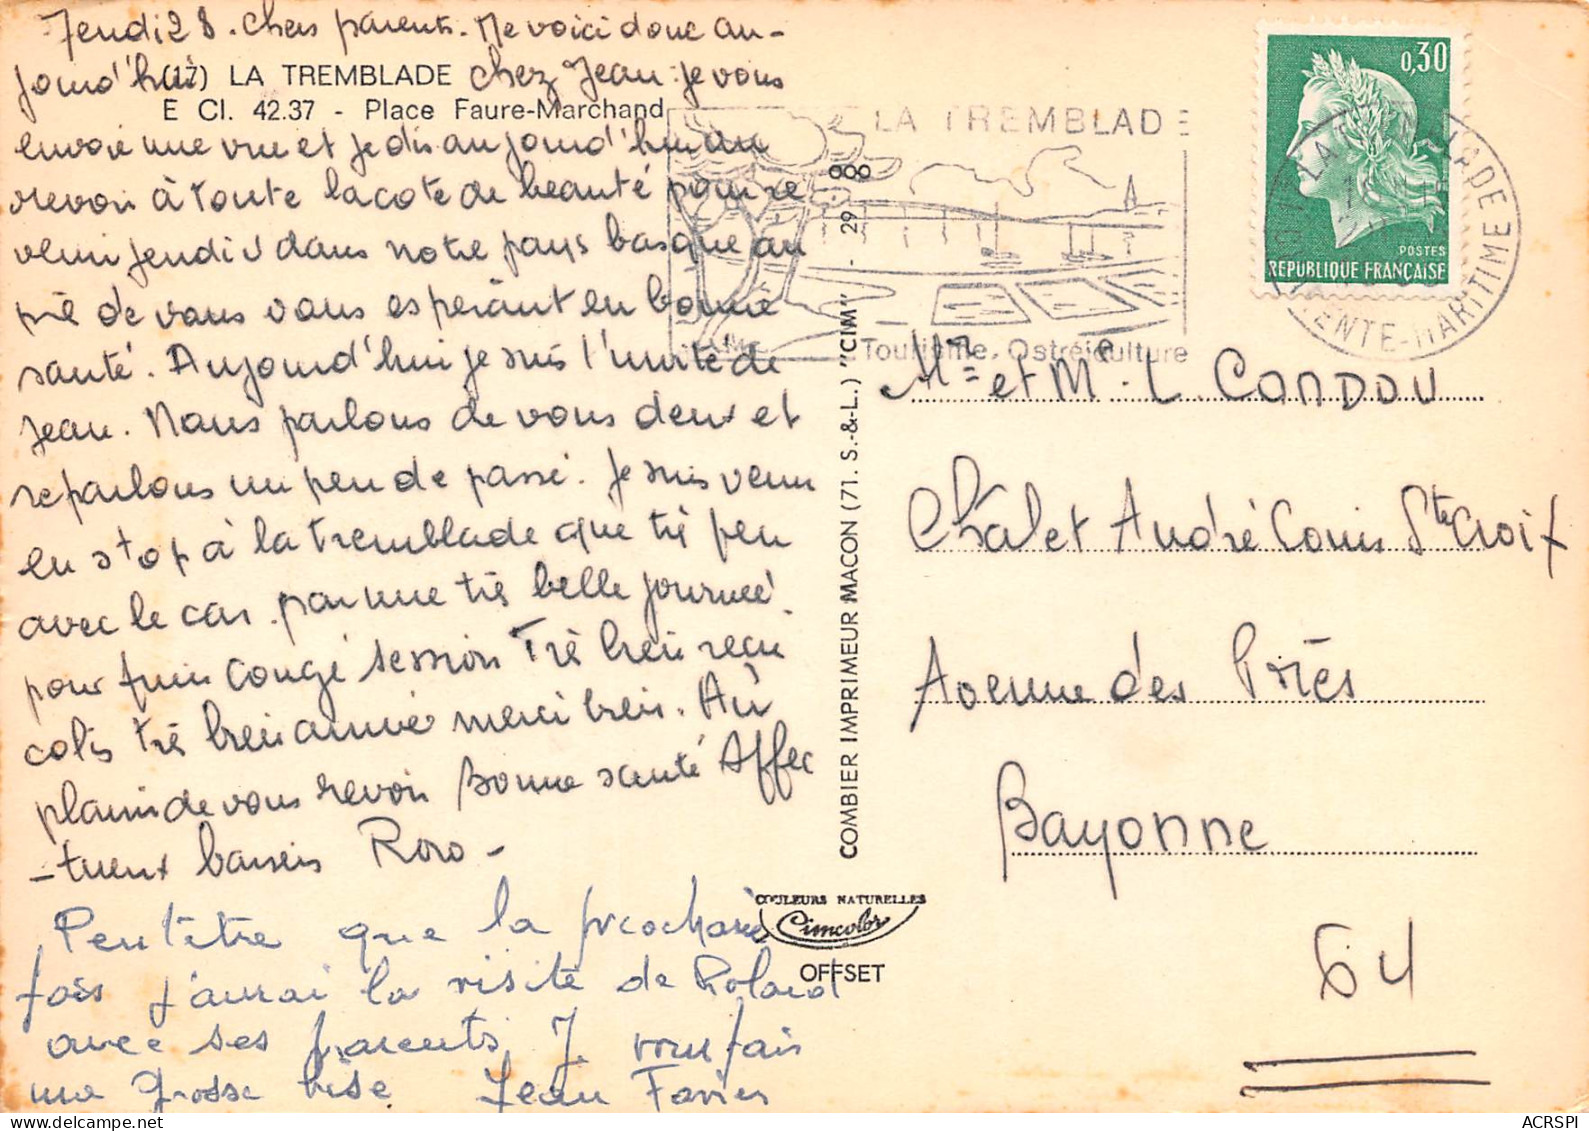 Jeudi 28. Chers parents. Me voici donc au-
jourd'hui chez Jean. je vous
(17) LA TREMBLADE
E Cl. 42.37 - Place Faure-Marchand
envoie une vue et je dis aujourd'hui au
revoir à toute la cote de beauté pour re
venir jeudi v dans notre pays basque au
pré de vous vous espérant en bonne
santé. Aujourd'hui je suis l'invité de
Jean. Nous parlons de vous deux et
reparlons un peu de passé. Je suis venu
en stop à la tremblade que tré peu
avec le car. par une très belle journée.
pour fuir congé session Tré bien reçu
colis tré bien arrivé merci bien. Au
plaisir de vous revoir Bonne santé Affec
-tueux baisers Roro -
Peut être que la prochaine
fois j'aurai la visite de Roland
avec ses parents. J. vous fais
une grosse bise Jean Favier
LA TREMBLADE
Tourisme. Ostréiculture
0,30
POSTES
REPUBLIQUE FRANÇAISE
LA TREMBLADE
CHARENTE-MARITIME
COMBIER IMPRIMEUR MACON (71. S.-&-L.) "CIM" - 29
COULEURS NATURELLES
Cimcolor
OFFSET
Mr et Me. L. CONDOU
Châlet André Louis Ste Croix
Avenue des Prés
Bayonne
64
ACRSPI